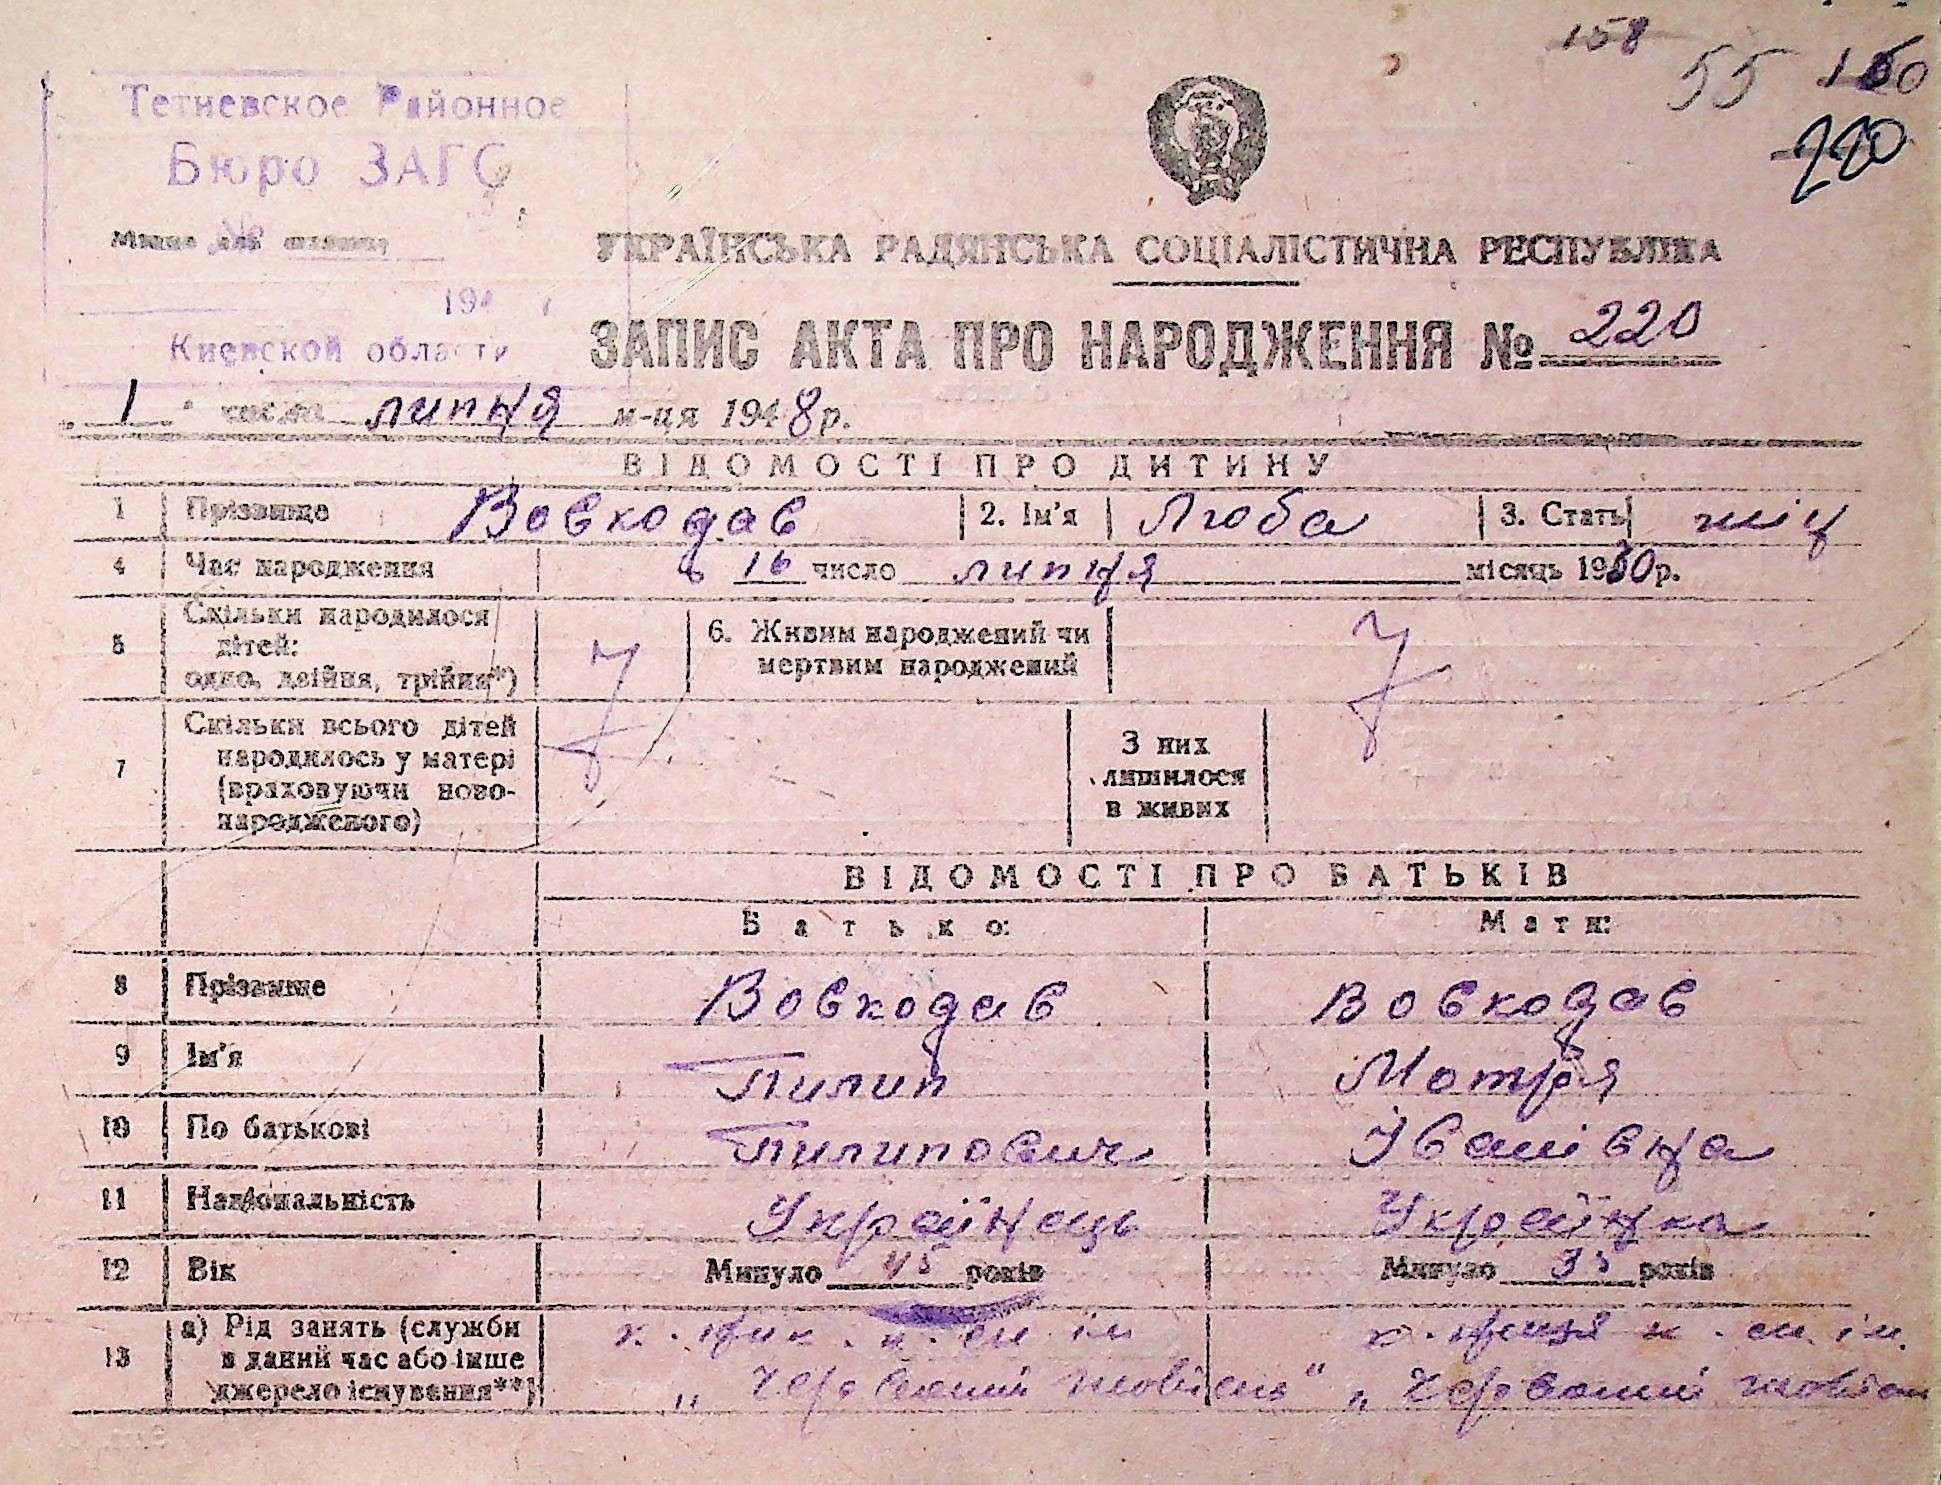 158
55 150
220
Тетиевское Районное
Бюро ЗАГС
194
Киевской области
УКРАЇНСЬКА РАДЯНСЬКА СОЦІАЛІСТИЧНА РЕСПУБЛІКА
ЗАПИС АКТА ПРО НАРОДЖЕННЯ № 220
1 числа липня м-ця 1948 р.
ВІДОМОСТІ ПРО ДИТИНУ
1 Прізвище Вовкодав 2. Ім'я Люба 3. Стать жін
4 Час народження 16 число липня місяць 1930 р.
5 Скільки народилося
дітей:
одно, двійня, трійня*)
6. Живим народжений чи
мертвим народжений
7 Скільки всього дітей
народилось у матері
(враховуючи ново-
народженого)
З них
лишилося
в живих
ВІДОМОСТІ ПРО БАТЬКІВ
Батько: Мати:
8 Прізвище Вовкодав Вовкодав
9 Ім'я Пилип Мотря
10 По батькові Пилипович Іванівна
11 Національність Українець Українка
12 Вік Минуло 45 років Минуло 35 років
13 а) Рід занять (служби
в даний час або інше
джерело існування**)
к-ник к-сп ім к-ниця к-сп ім.
„Червоний жовтень" „Червоний жовтень